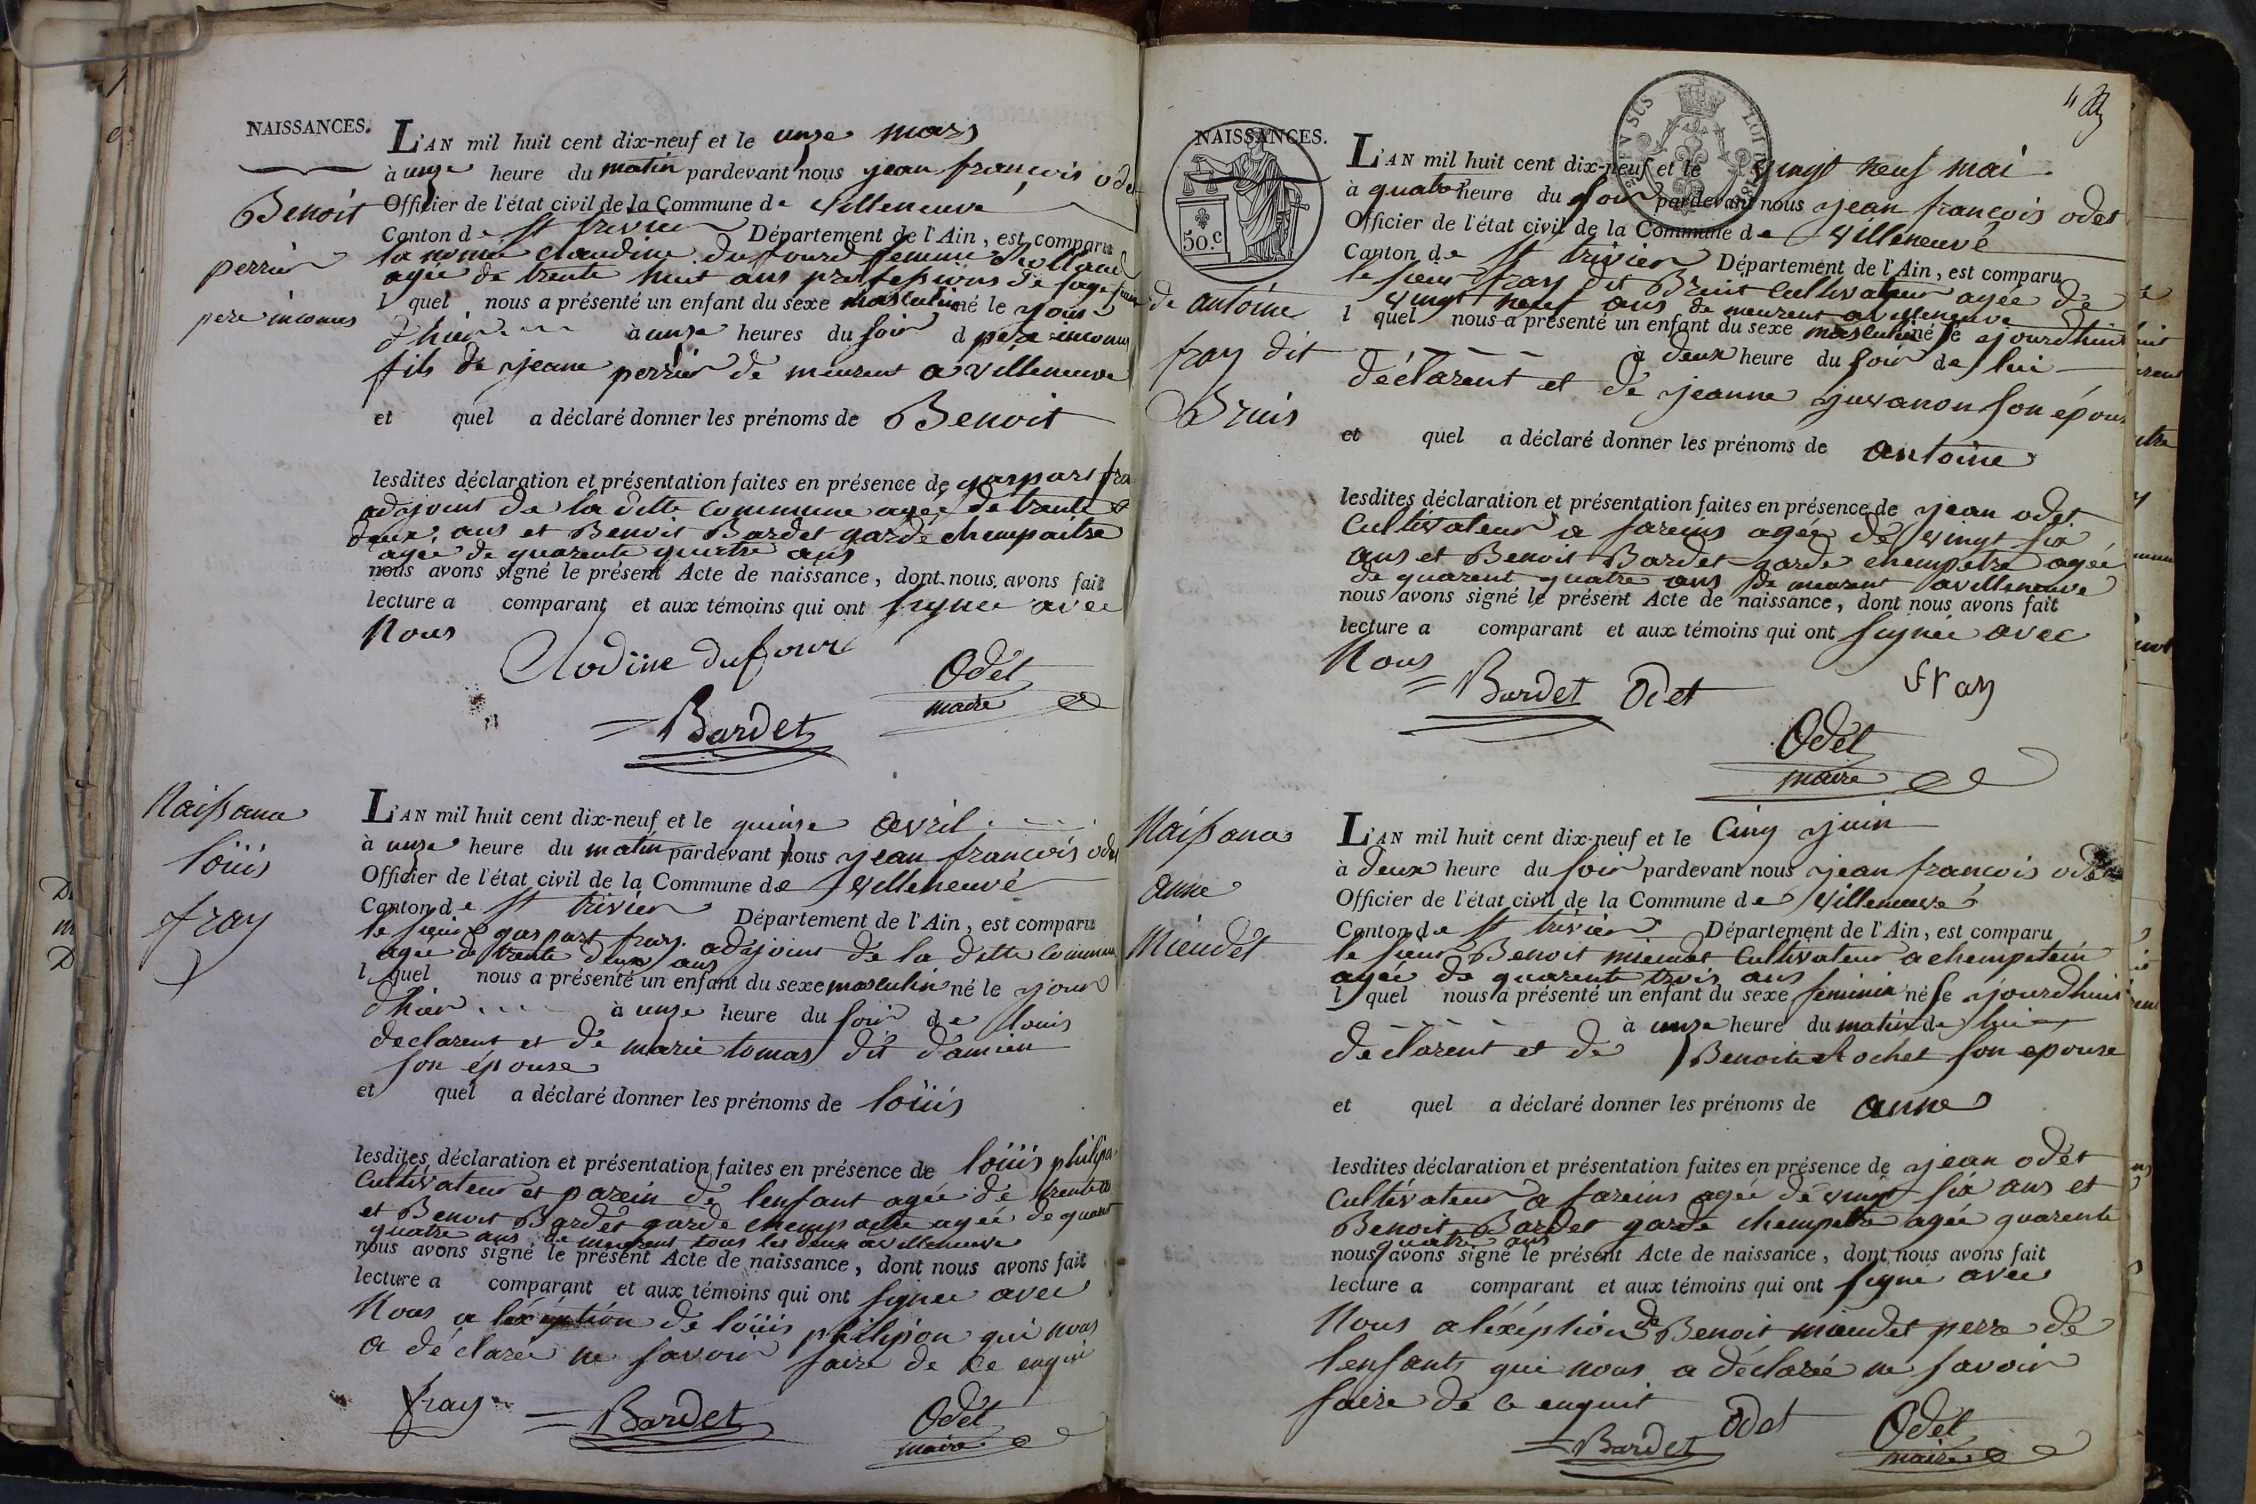 NAISSANCES.
Benoit
perrier
pere inconus
L'AN mil huit cent dix-neuf et le unze mars
à unze heure du matin pardevant nous jean francois odet
Officier de l'état civil de la Commune de villeneuve
Canton de St trivier Département de l'Ain, est comparu
la nomée claudine dufourd femme
agée de trente huit ans profession de sage
l quel nous a présenté un enfant du sexe masculin né le jour
d'hier à unze heures du soir d pere inconu
fils de jeane perrier de meurent a villeneuve
et quel a déclaré donner les prénoms de Benoit
lesdites déclaration et présentation faites en présence de gaspart fra
adjoint de la ditte commune agée de trente
deux ans et Benoit Bardet garde chempaitre
agée de quarente quatre ans
nous avons signé le présent Acte de naissance, dont nous avons fait
lecture a comparant et aux témoins qui ont signée avec
Nous
Clodine dufour
Odet
maire
Bardet
Naissance
loüis
fray
L'AN mil huit cent dix-neuf et le quinse avril
à unze heure du matin pardevant nous jean francois odet
Officier de l'état civil de la Commune de villeneuve
Canton de St trivier Département de l'Ain, est comparu
le sieur gaspart fray adjoint de la ditte commune
agée de trente deux ans
l quel nous a présenté un enfant du sexe masculin né le jour
d'hier à unze heure du soir de louis
declarent et de marie tomas dit damien
son épouse
et quel a déclaré donner les prénoms de loüis
lesdites déclaration et présentation faites en présence de loüis philipon
cultivateur et parein de lenfant agée de trente
et Benoit Bardet garde chempaitre agée de quarent
quatre ans de meurent tous les deux a villeneuve
nous avons signé le présent Acte de naissance, dont nous avons fait
lecture a comparant et aux témoins qui ont signée avec
Nous a léxeption de loüis philipon qui nous
a déclarée ne savoir faire de ce enquri
fray
Bardet
Odet
maire
NAISSANCES.
50.c
de antoine
fray dit
Bruis
L'AN mil huit cent dix-neuf et le vingt neuf mai
à quatre heure du soir pardevant nous jean francois odet
Officier de l'état civil de la Commune de villeneuve
Canton de St trivier Département de l'Ain, est comparu
le sieur fray dit Bruis cultivateur agée de
vingt neuf ans de meurent a villeneuve
l quel nous a présenté un enfant du sexe masculin né le ejourdhuit
à deux heure du soir de lui
déclarent et de jeanne juvanon son épouse
et quel a déclaré donner les prénoms de antoine
lesdites déclaration et présentation faites en présence de jean odet
cultivateur a fareins agée de vingt six
ans et Benoit Bardet garde chempetre agée
de quarent quatre ans de meurent a villeneuve
nous avons signé le présent Acte de naissance, dont nous avons fait
lecture a comparant et aux témoins qui ont signée avec
Nous
Bardet Odet
fray
Odet
maire
Naissance
anne
Miendet
L'AN mil huit cent dix-neuf et le Cinq juin
à deux heure du soir pardevant nous jean francois odet
Officier de l'état civil de la Commune de villeneuve
Canton de St trivier Département de l'Ain, est comparu
le sieur Benoit miendet cultivateur a chempetein
agée de quarente trois ans
l quel nous a présenté un enfant du sexe feminin né le ejourdhui
à unze heure du matin de lui
déclarent et de Benoite Rochet son epouse
et quel a déclaré donner les prénoms de anne
lesdites déclaration et présentation faites en présence de jean odet
cultivateur a fareins agée de vingt six ans et
Benoit Bardet garde chempetre agée quarente
quatre ans
nous avons signé le présent Acte de naissance, dont nous avons fait
lecture a comparant et aux témoins qui ont signe avec
Nous a léxéption de Benoit miendet perre de
lenfants qui nous a déclarée ne savoir
faire de ce enquit
Bardet
Odet
Odet
maire